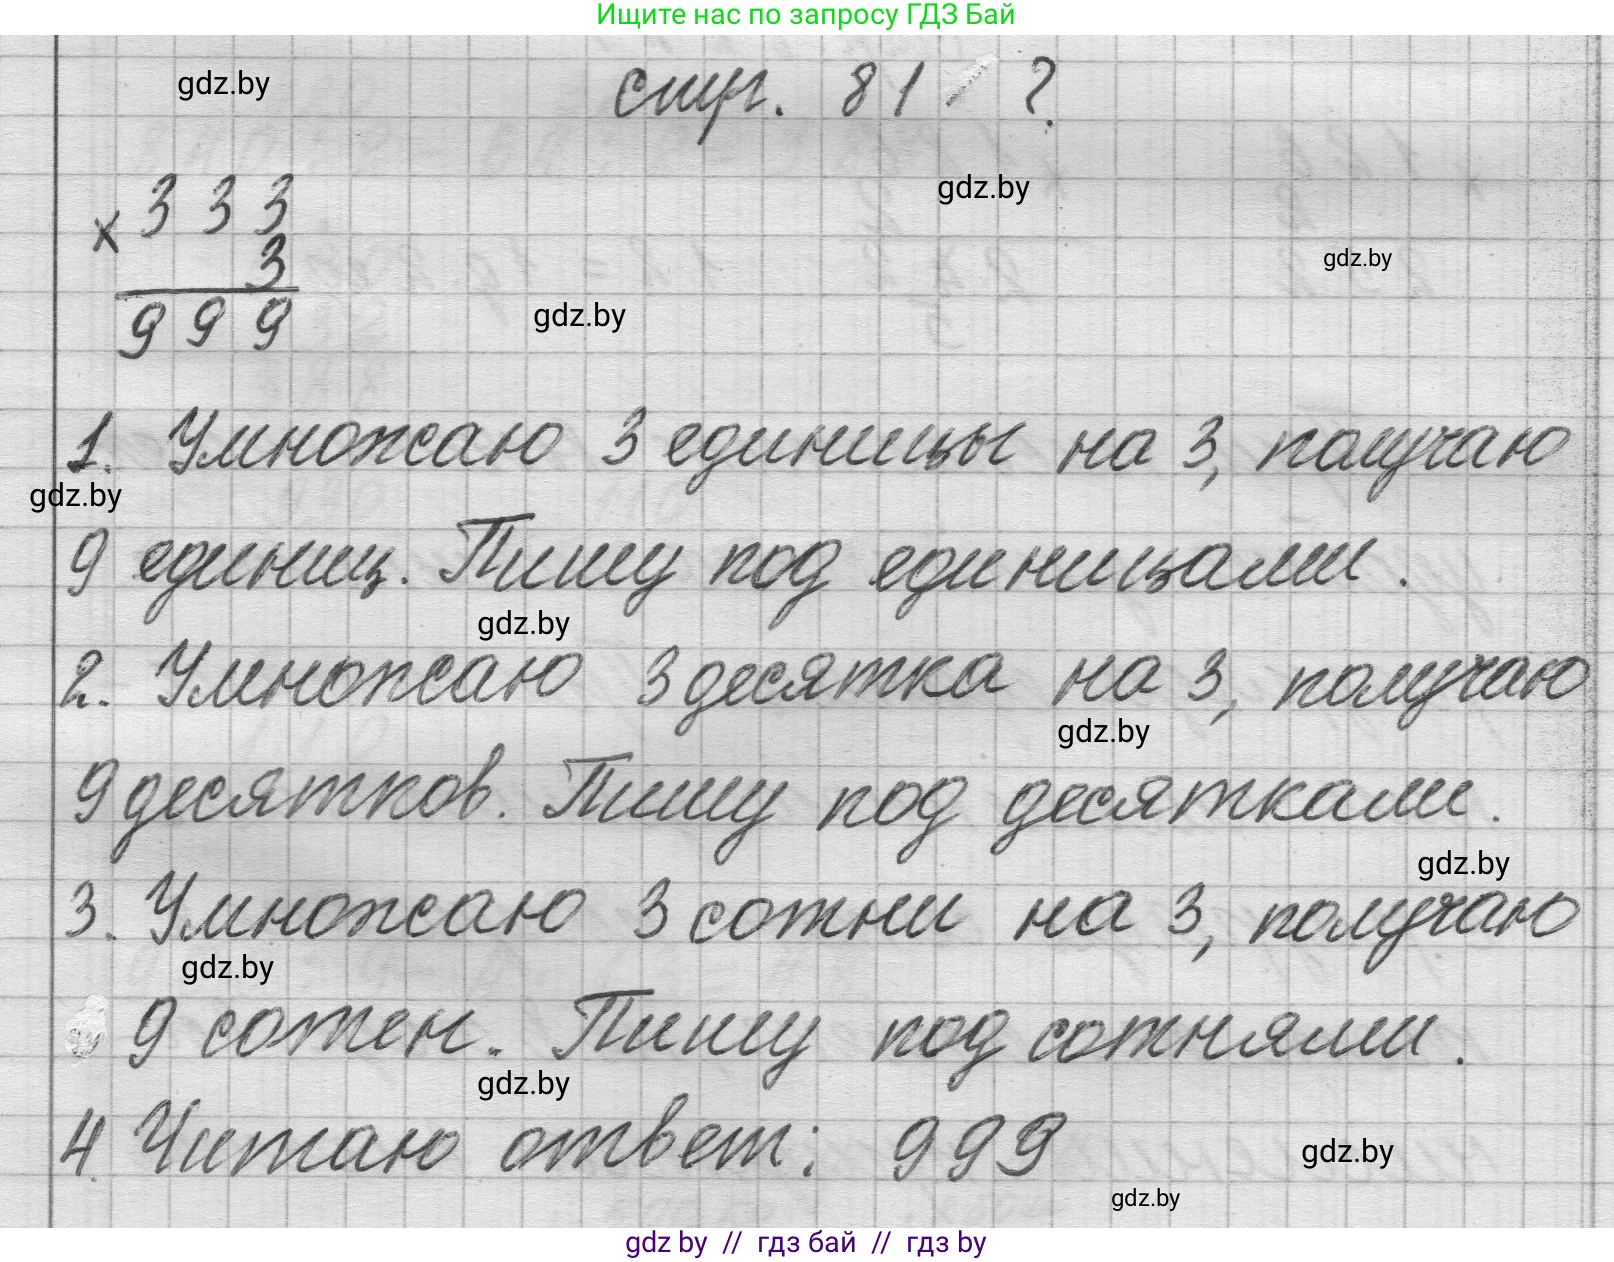 Ищите нас по запросу ГДЗ Бай
gdz.by
стр. 81 ?
gdz.by
× 333
3
gdz.by
999
gdz.by
1. Умножаю 3 единицы на 3, получаю
gdz.by
9 единиц. Пишу под единицами.
gdz.by
2. Умножаю 3 десятка на 3, получаю
gdz.by
9 десятков. Пишу под десятками.
gdz.by
3. Умножаю 3 сотни на 3, получаю
gdz.by
9 сотен. Пишу под сотнями.
gdz.by
4. Читаю ответ: 999
gdz.by
gdz.by
gdz by // гдз бай // гдз by